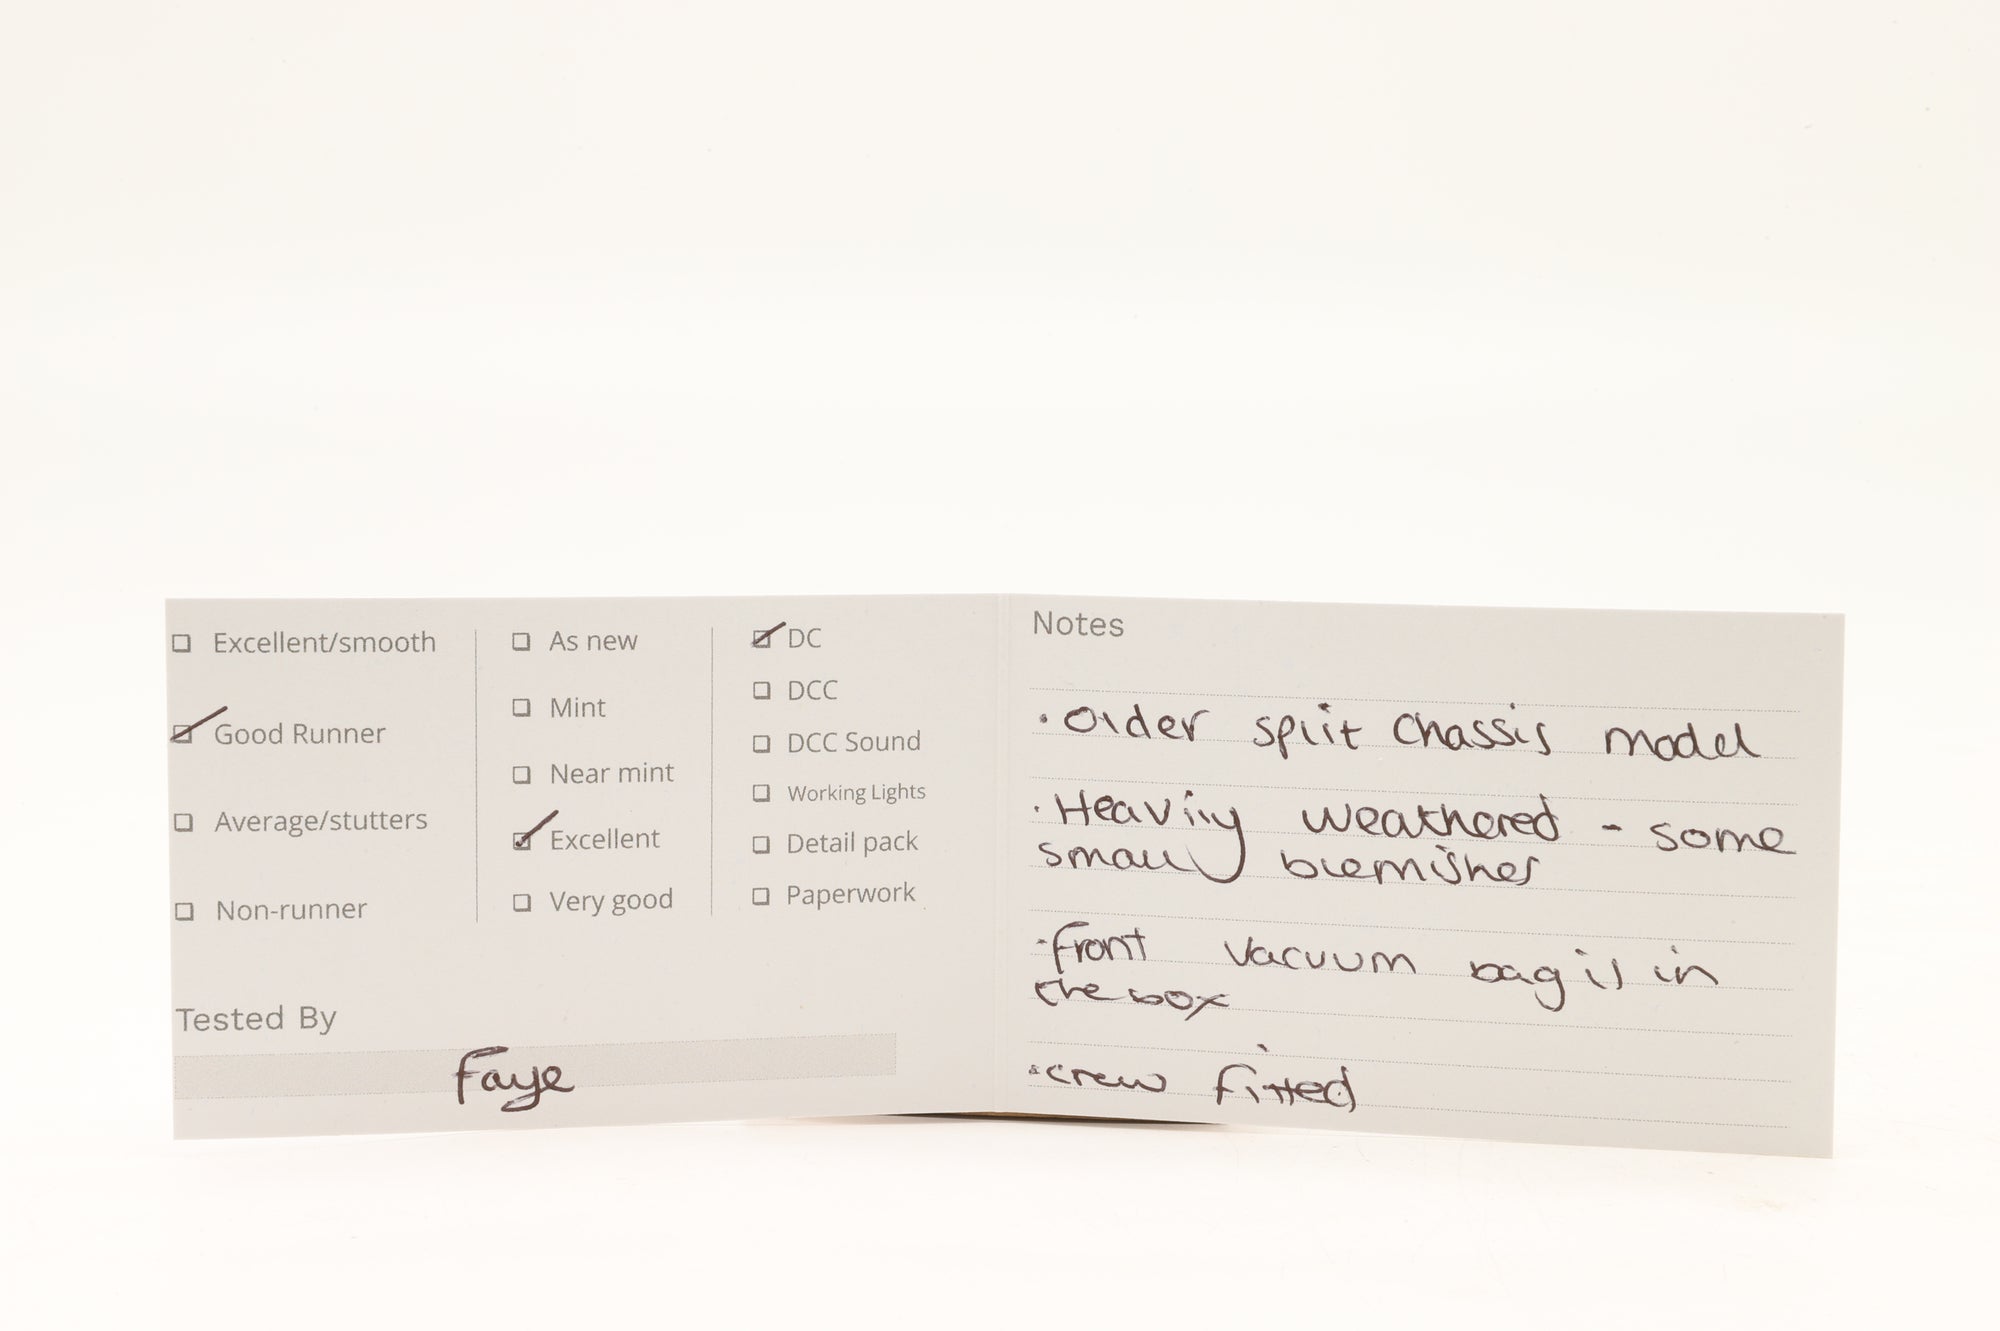 Excellent/smooth
Good Runner
Average/stutters
Non-runner
As new
Mint
Near mint
Excellent
Very good
DC
DCC
DCC Sound
Working Lights
Detail pack
Paperwork
Tested By
Faye
Notes
· Older split chassis model
· Heavily weathered - some
small blemishes
· front vacuum bag is in
the box
· crew fitted